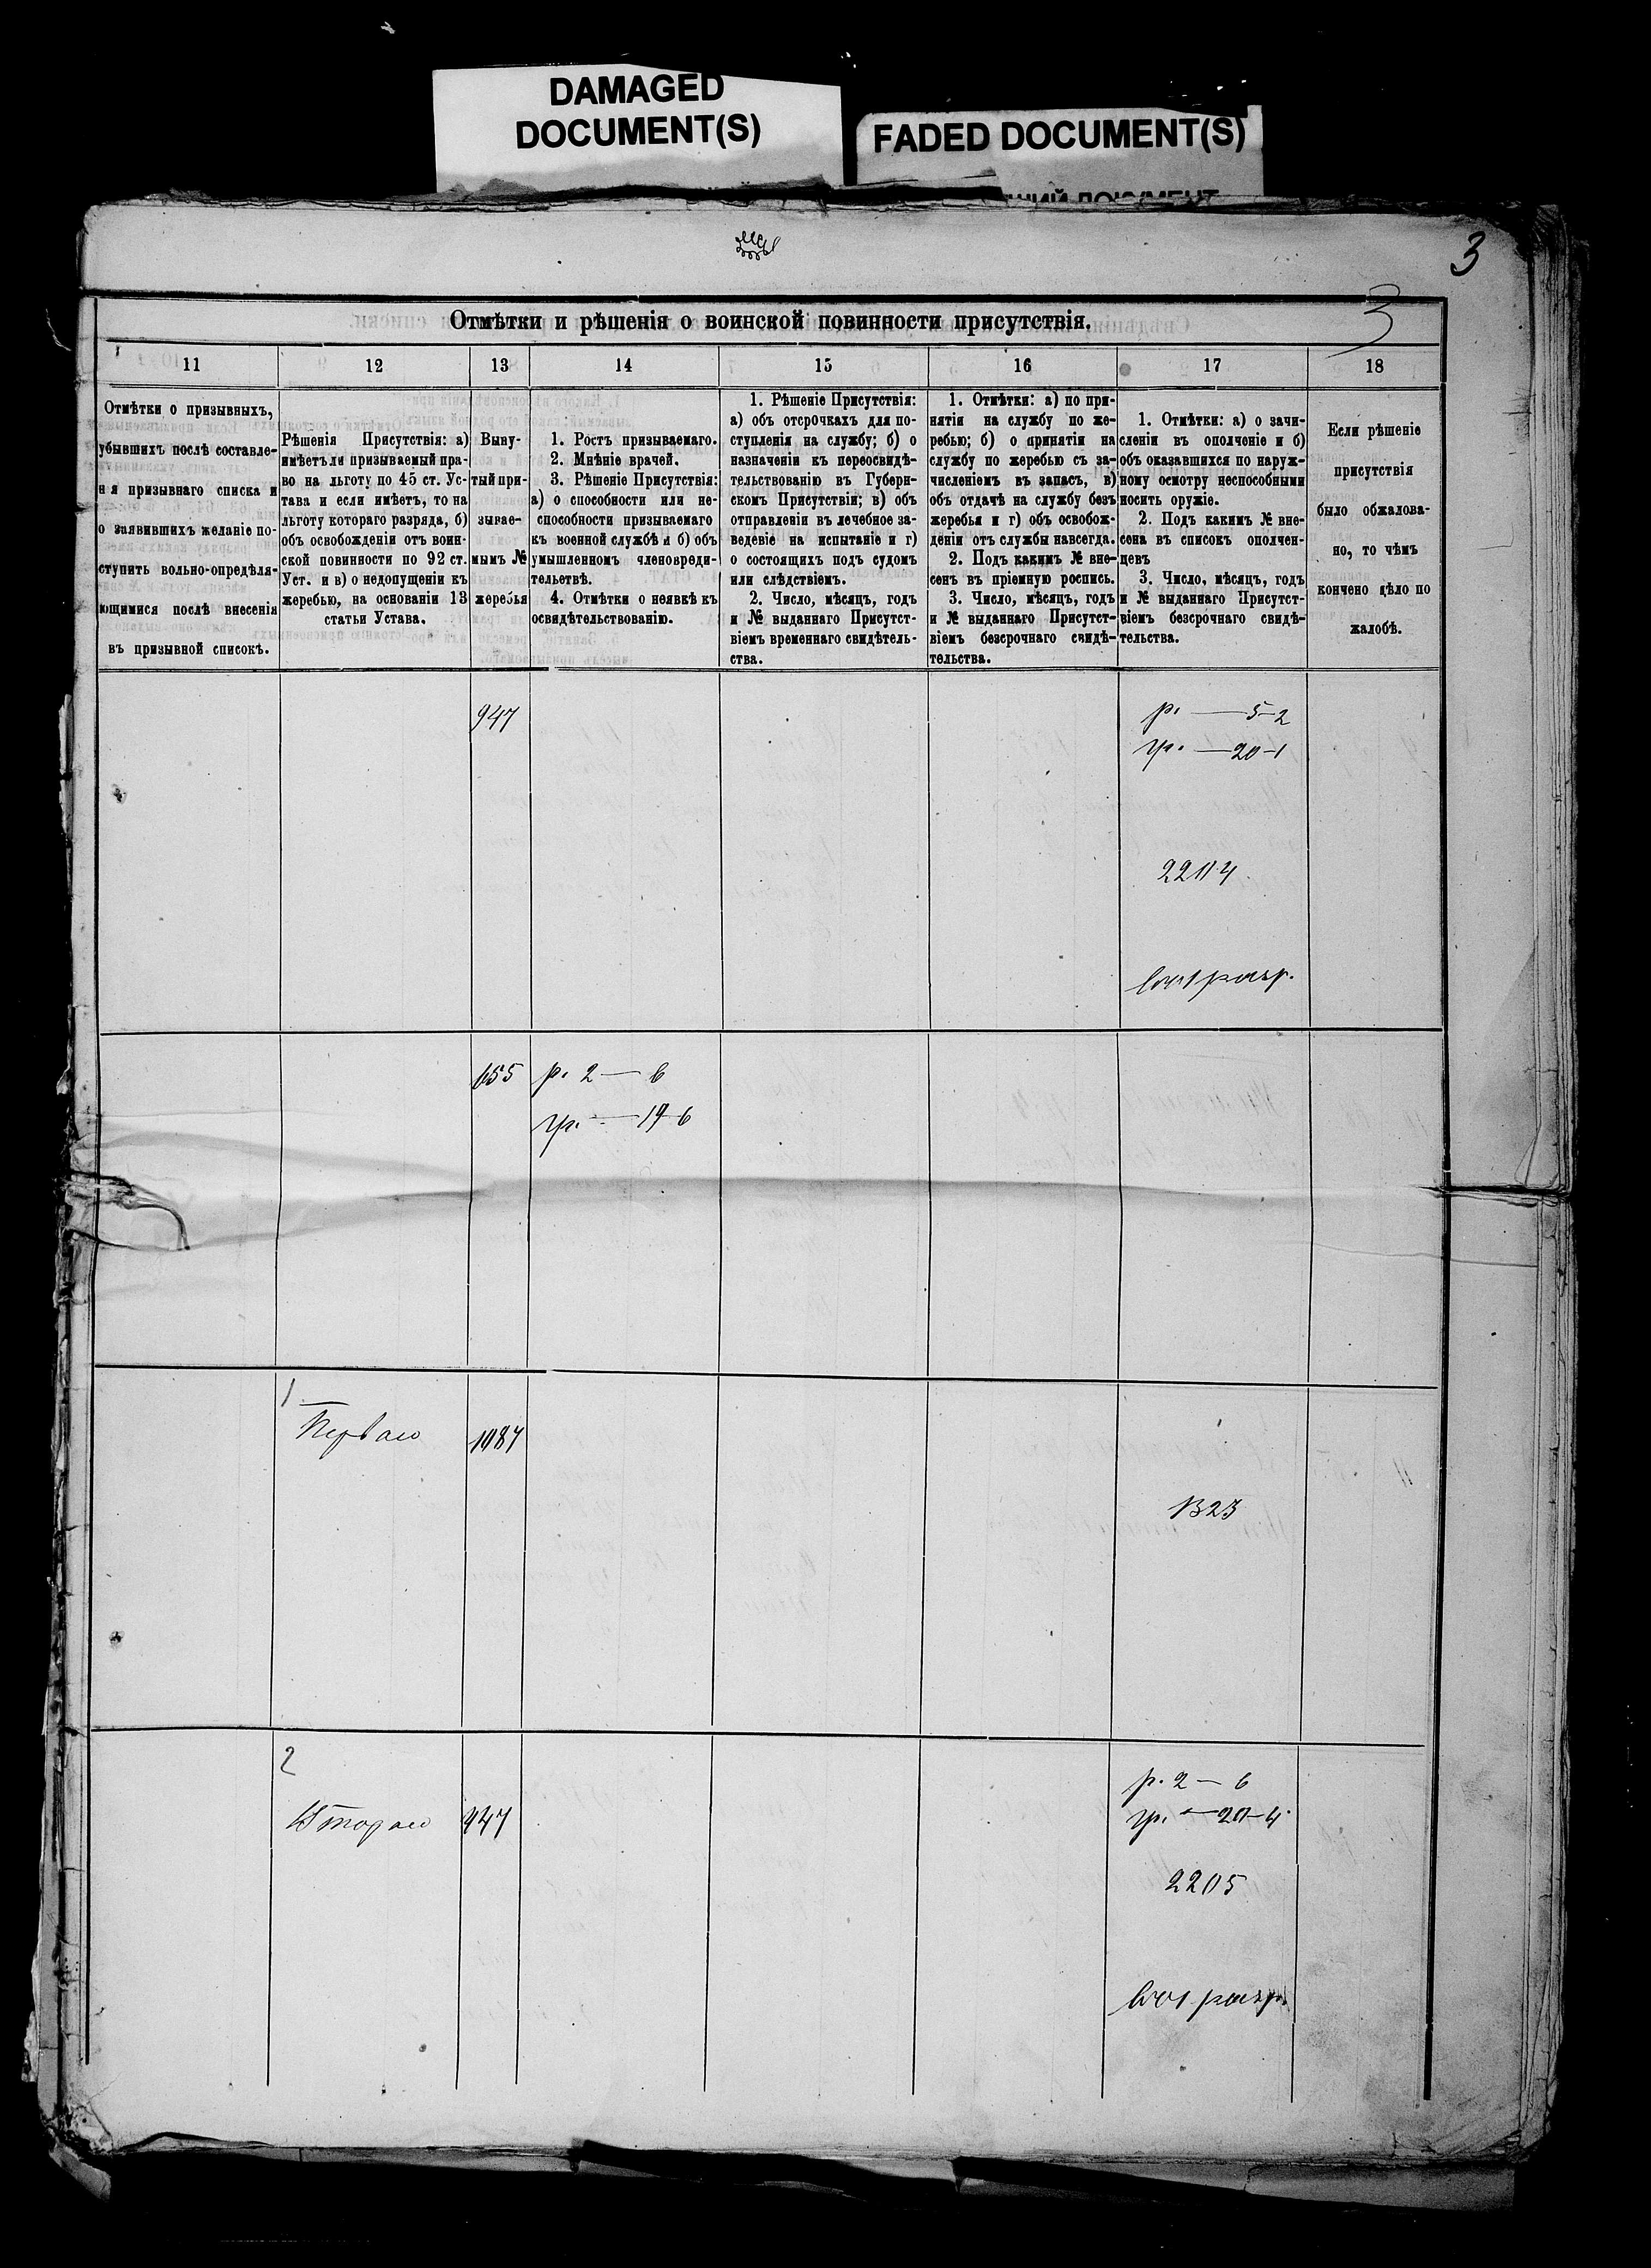 DAMAGED
DOCUMENT(S)
FADED DOCUMENT(S)
3
3
Отмѣтки и рѣшенія о воинской повинности присутствія.
11 12 13 14 15 16 17 18
Отмѣтки о призывныхъ,
убывшихъ послѣ составле-
нія призывнаго списка и
о заявившихъ желаніе по-
ступить вольно-опредѣля-
ющимися послѣ внесенія
въ призывной списокъ.
Рѣшенія Присутствія: а)
имѣетъ ли призываемый пра-
во на льготу по 45 ст. Ус-
тава и если имѣетъ, то на
льготу котораго разряда, б)
объ освобожденіи отъ воин-
ской повинности по 92 ст.
Уст. и в) о недопущеніи къ
жеребью, на основаніи 13
статьи Устава.
Выну-
тый при-
зывае-
мымъ №
жеребья
1. Ростъ призываемаго.
2. Мнѣніе врачей.
3. Рѣшеніе Присутствія:
а) о способности или не-
способности призываемаго
къ военной службѣ и б) объ
умышленномъ членовреди-
тельствѣ.
4. Отмѣтки о неявкѣ къ
освидѣтельствованію.
1. Рѣшеніе Присутствія:
а) объ отсрочкахъ для по-
ступленія на службу; б) о
назначеніи къ переосвидѣ-
тельствованію въ Губерн-
скомъ Присутствіи; в) объ
отправленіи въ лечебное за-
веденіе на испытаніе и г)
о состоящихъ подъ судомъ
или слѣдствіемъ.
2. Число, мѣсяцъ, годъ
и № выданнаго Присутст-
віемъ временнаго свидѣтель-
ства.
1. Отмѣтки: а) по при-
нятіи на службу по же-
ребью; б) о принятіи на
службу по жеребью съ за-
численіемъ въ запасъ, в)
объ отдачѣ на службу безъ
жеребья и г) объ освобож-
деніи отъ службы навсегда.
2. Подъ какимъ № вне-
сенъ въ пріемную роспись.
3. Число, мѣсяцъ, годъ
и № выданнаго Присутст-
віемъ безсрочнаго свидѣ-
тельства.
1. Отмѣтки: а) о зачи-
сленіи въ ополченіе и б)
объ оказавшихся по наруж-
ному осмотру неспособными
носить оружіе.
2. Подъ какимъ № вне-
сена въ списокъ ополчен-
цевъ
3. Число, мѣсяцъ, годъ
и № выданнаго Присутст-
віемъ безсрочнаго свидѣ-
тельства.
Если рѣшеніе
присутствія
было обжалова-
но, то чѣмъ
кончено дѣло по
жалобѣ.
947
р. — 5-2
гр. — 20-1
2204
655 р. 2 — 6
гр. — 19-6
1
Перваго 1087
1323
2
Втораго 447
р. 2 — 6
гр. — 20-4
2205